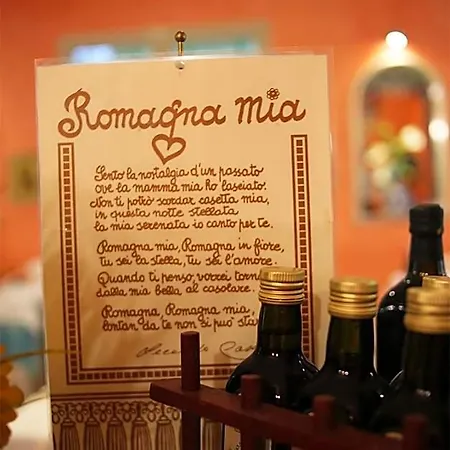 Romagna mia
Sento la nostalgia d'un passato
ove la mamma mia ho lasciato.
Non ti potrò scordar casetta mia,
in questa notte stellata
la mia serenata io canto per te.
Romagna mia, Romagna in fiore,
tu sei la stella, tu sei l'amore.
Quando ti penso, vorrei torn
dalla mia bella al casolare.
Romagna, Romagna mia,
lontan da te non si può sta